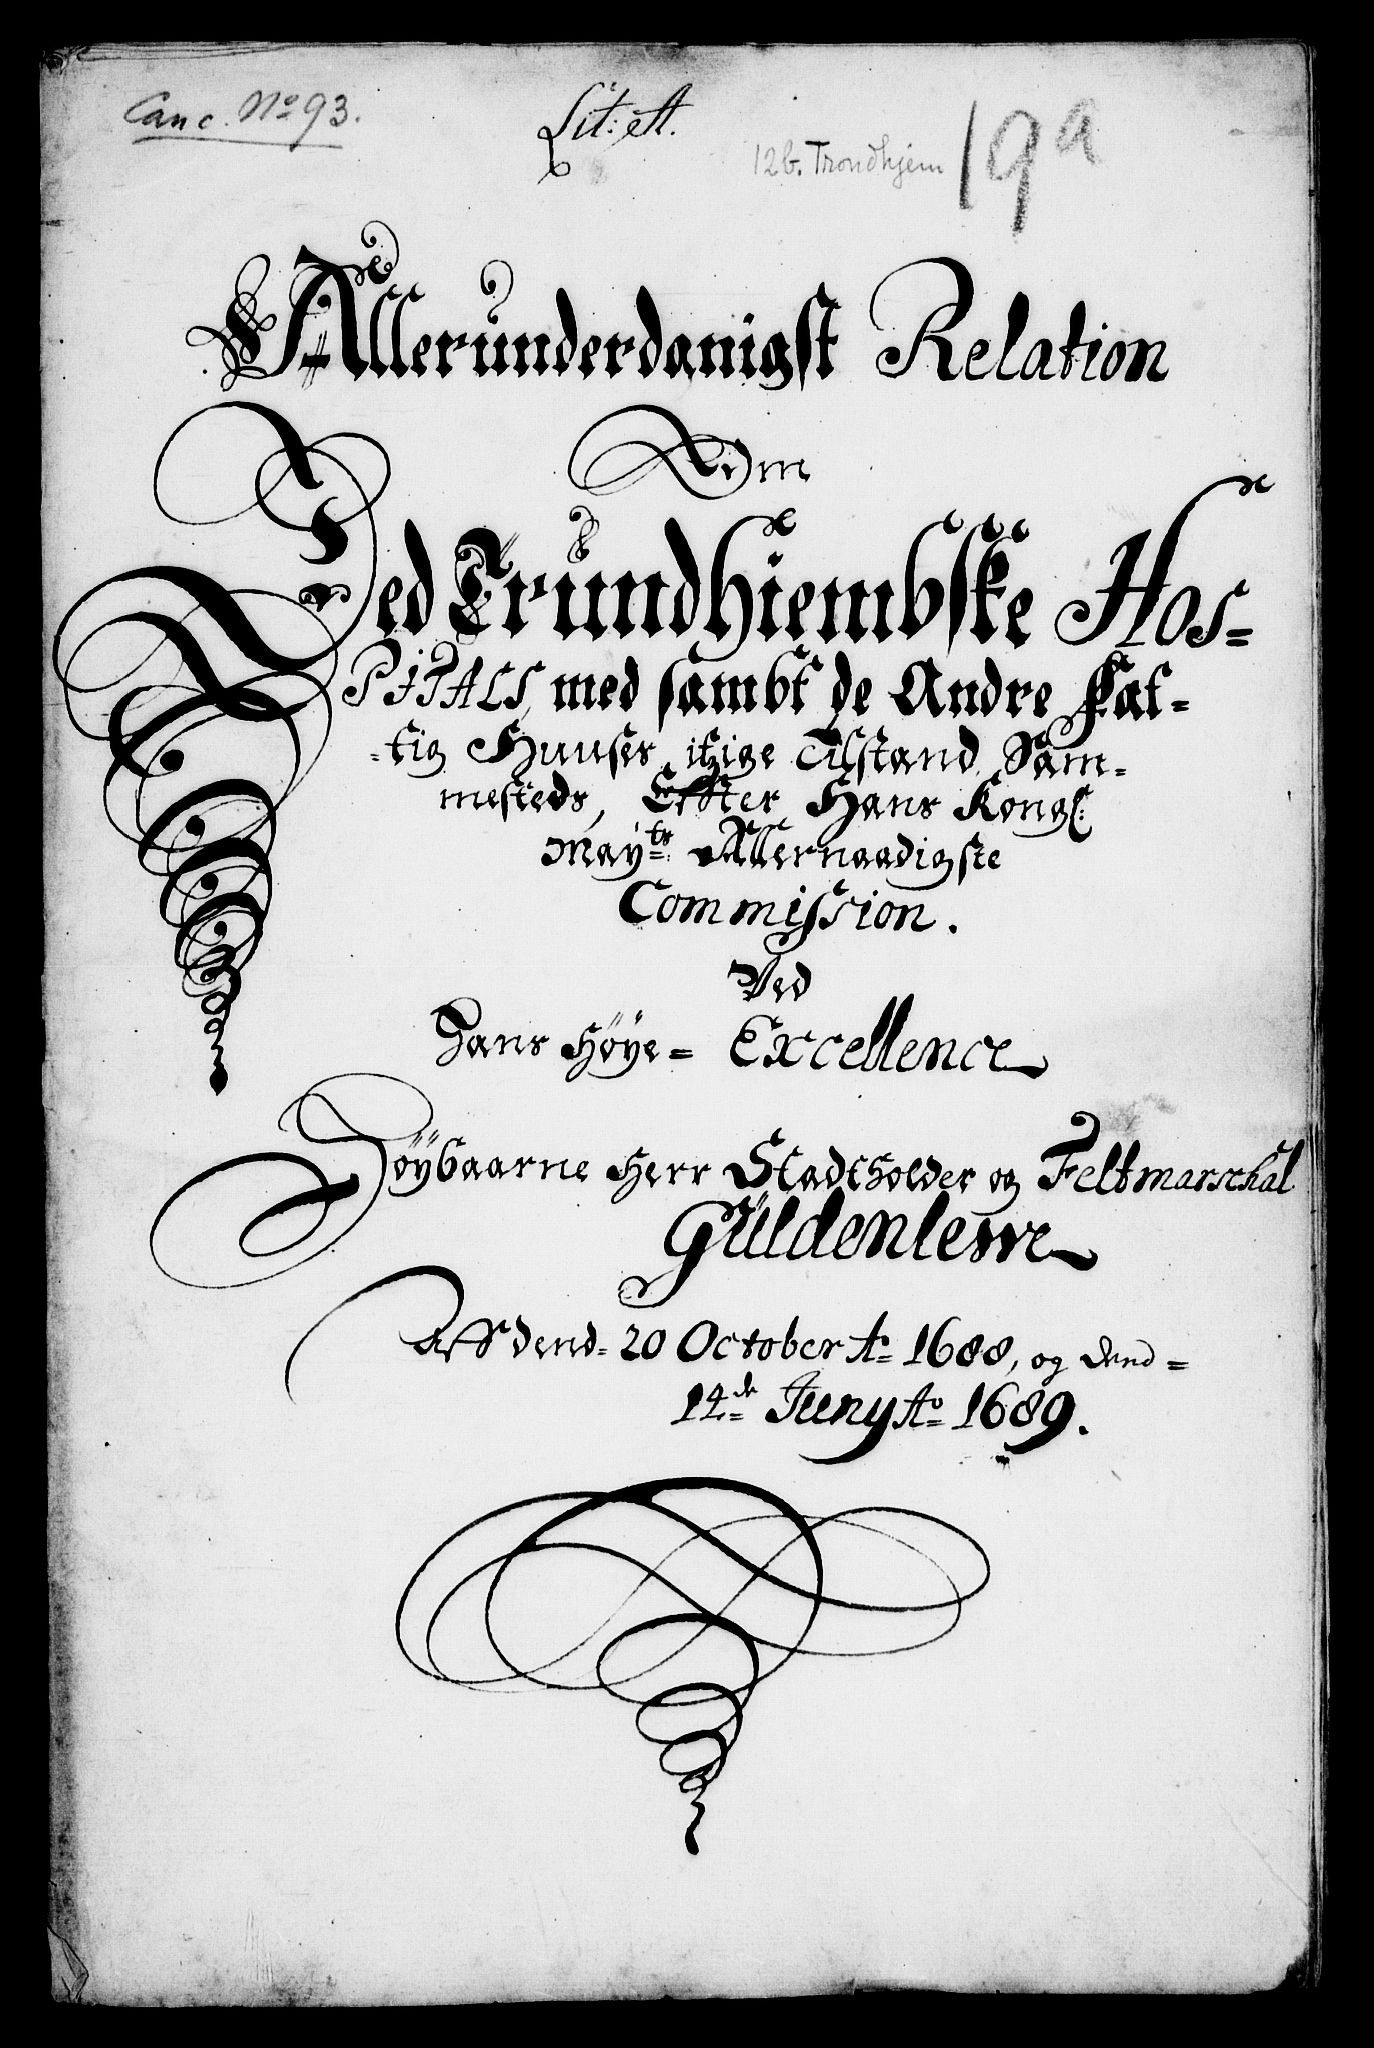 Canc. No 93.
Lit: A.
12b. Trondhjem
19a
Allerunderdanigst Relation
Om
Ded Trundhiembske Hos=
PITALS, med sambt de Andre Fat=
=tig Huuser, itzige Tilstand Sam=
mesteds, Effter Hans Kongl:
Mayts: Allernaadigste
Commission.
Ved
Hans Høye= Excellence
Høybaarne Herr Stadtholder og Feltmarschal
Güldenlewe
Aff dend= 20 October Ao= 1688, og dend=
14de Juny Ao= 1689.